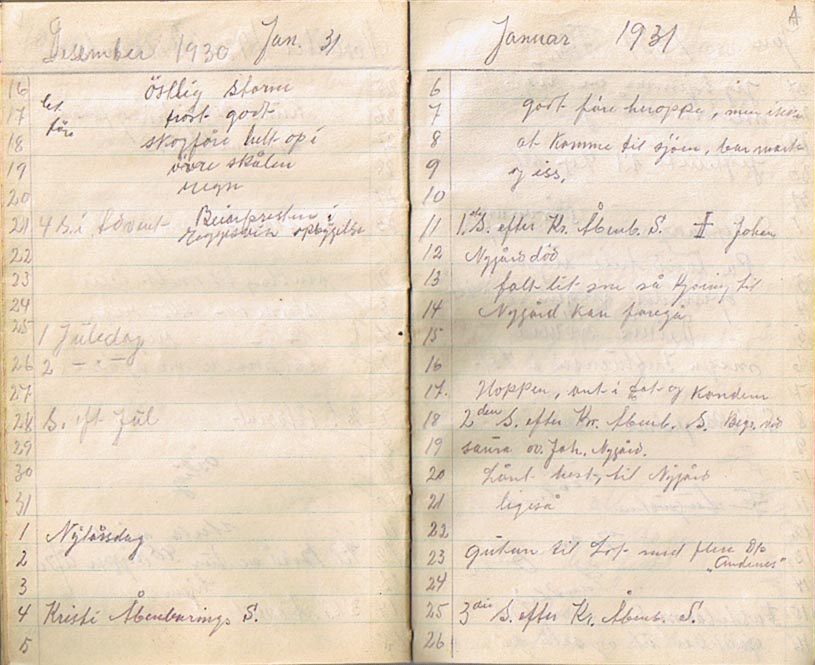 Desember 1930 Jan. 31
16 östlig storm
17 let frost godt
18 före skogföre helt op i
19 övre skålen
20 regn
21 4 S. i Advent Beiarpresten i
opbyggelse
22
23
24
25 1 Juledag
26 2 - " -
27
28 S. eft Jul
29
30
31
1 Nytårsdag
2
3
4 Kristi Åbenbarings S.
5
Januar 1931
A
6
7 godt före heroppe, men ikke
8 at komme til sjöen, bar marka
9 og iss,
10
11 1ste S. efter Kr. Åbenb. S. Johan
12 Nygård död
13 falt lit sne så kjöring til
14 Nygård kan foregå
15
16
17. Hoppen, ont i fot og
18 2den S. efter Kr. Åbenb. S. Begr. ved
19 saura av Joh. Nygård.
20 Lånt hest, til Nygård
21 ligeså
22
23 gutan til Lof. med flere D/S
"Andenes"
24
25 3die S. efter Kr. Åbenb. S.
26